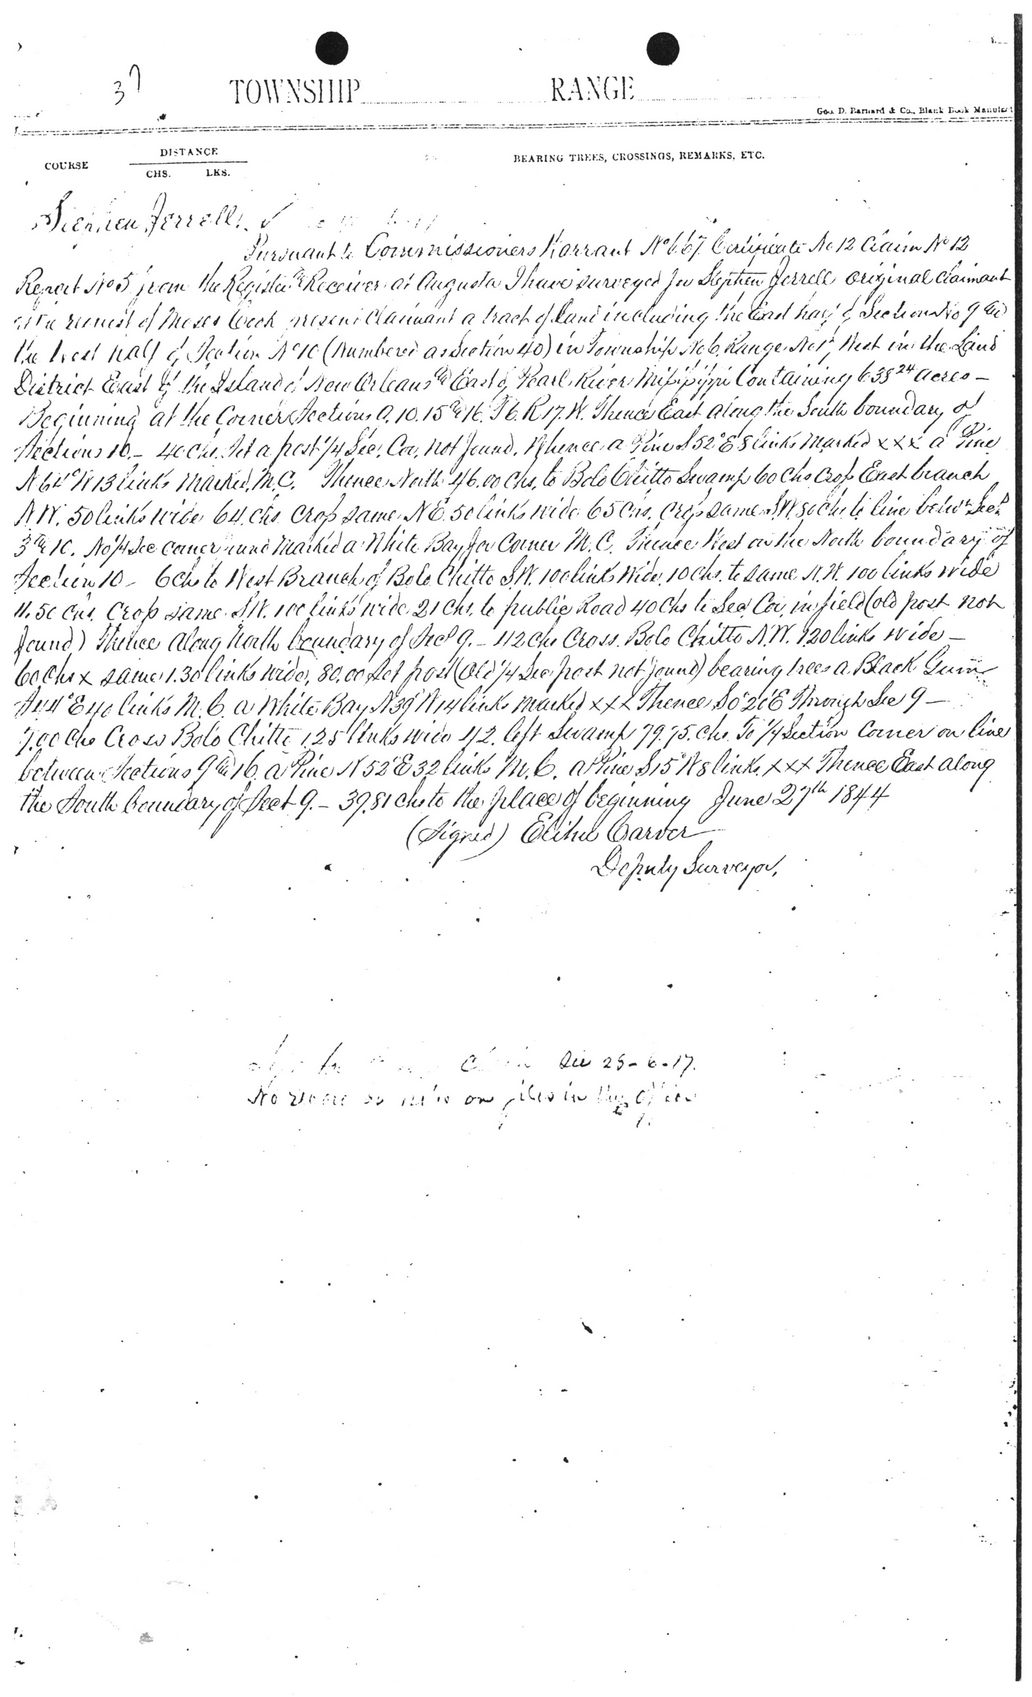 37 TOWNSHIP RANGE
Geo. D. Barnard & Co., Blank Book Manufact
COURSE DISTANCE BEARING TREES, CROSSINGS, REMARKS, ETC.
CHS. LKS.
Stephen Jerrell
Pursuant to Commissioners Warrant No 667. Certificate No 12 Claim No 12
Report No 5 from the Register & Receiver at Augusta I have surveyed for Stephen Jerrell original claimant
request of Moses Cook present Claimant a tract of land including the East half of Section No 9 &
the West half of Section No 10 (Numbered as Section 40) in Township No 6 Range No 17 West in the Land
District East of the Island of New Orleans & East of Pearl River Missippi Containing 638 24 acres —
Beginning at the Corner Sections 9. 10. 15 & 16. T6. R17. W. Thence East along the South boundary of
Sections 10 — 40 chs. Set a post 1/4 Sec. Cor. not found. Whence a Pine S 52° E 8 links marked xxx a Pine
N 64° W 13 links marked M.C. Thence North 46.00 chs. to Bolo Chitto Swamp 60 chs Crop East branch
N.W. 50 links wide 64 chs. crop same N.E. 50 links wide 65 chs. crop same S.W. 80 chs to line betw. Secs
3 & 10. No 1/4 Sec corner marked a White Bay for Corner M.C. Thence West on the North boundary of
Section 10 — 6 chs to West Branch of Bolo Chitto S.W. 100 links wide, 10 chs. to same N.W. 100 links wide
11.50 chs. Crop same S.W. 100 links wide 21 chs. to public Road 40 chs to Sec Cor. in field (old post not
found) Thence along North boundary of Sec 9. — 42 chs Cross. Bolo Chitto N.W. 120 links wide —
60 chs x same 1.30 links wide, 80.00 Set post (Old 1/4 Sec post not found) bearing trees a Black Gum
E 40 links M.C. a White Bay N 39° W 14 links marked xxx Thence S 0° 20' E Through Sec 9 —
7.00 chs Cross Bolo Chitto 125 links wide 42. left Swamp 79.75. chs. To 1/4 Section Corner on line
between Sections 9 & 16. a Pine N 52° E 32 links M.C. a Pine S 15° W 8 links xxx Thence East along
the South boundary of Sect 9. — 39.81 chs to the place of beginning June 27th 1844
(Signed) Elihu Carver
Deputy Surveyor,
See 25-6-17.
No on files in this Office